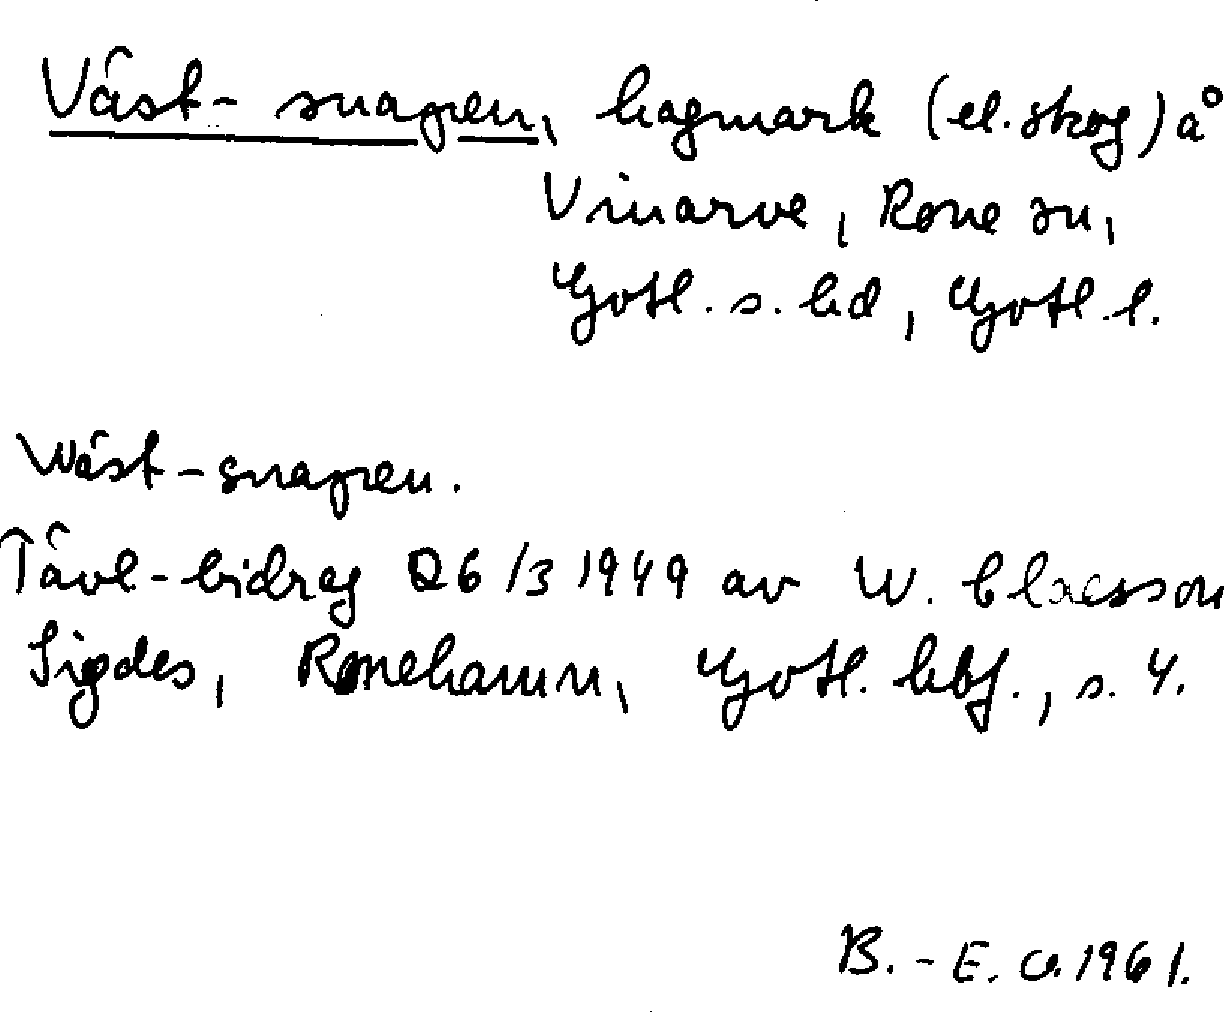 Väst-snapen, hagmark (el. skog) å
Vinarve, Rone sn,
Gotl. s. hd, Gotl. l.
Wäst-snapen.
Tävl-bidrag 26/3 1949 av W. Claesson
Sigdes, Ronehamn, Gotl. hbf., s. 4.
B.-E. G. 1961.